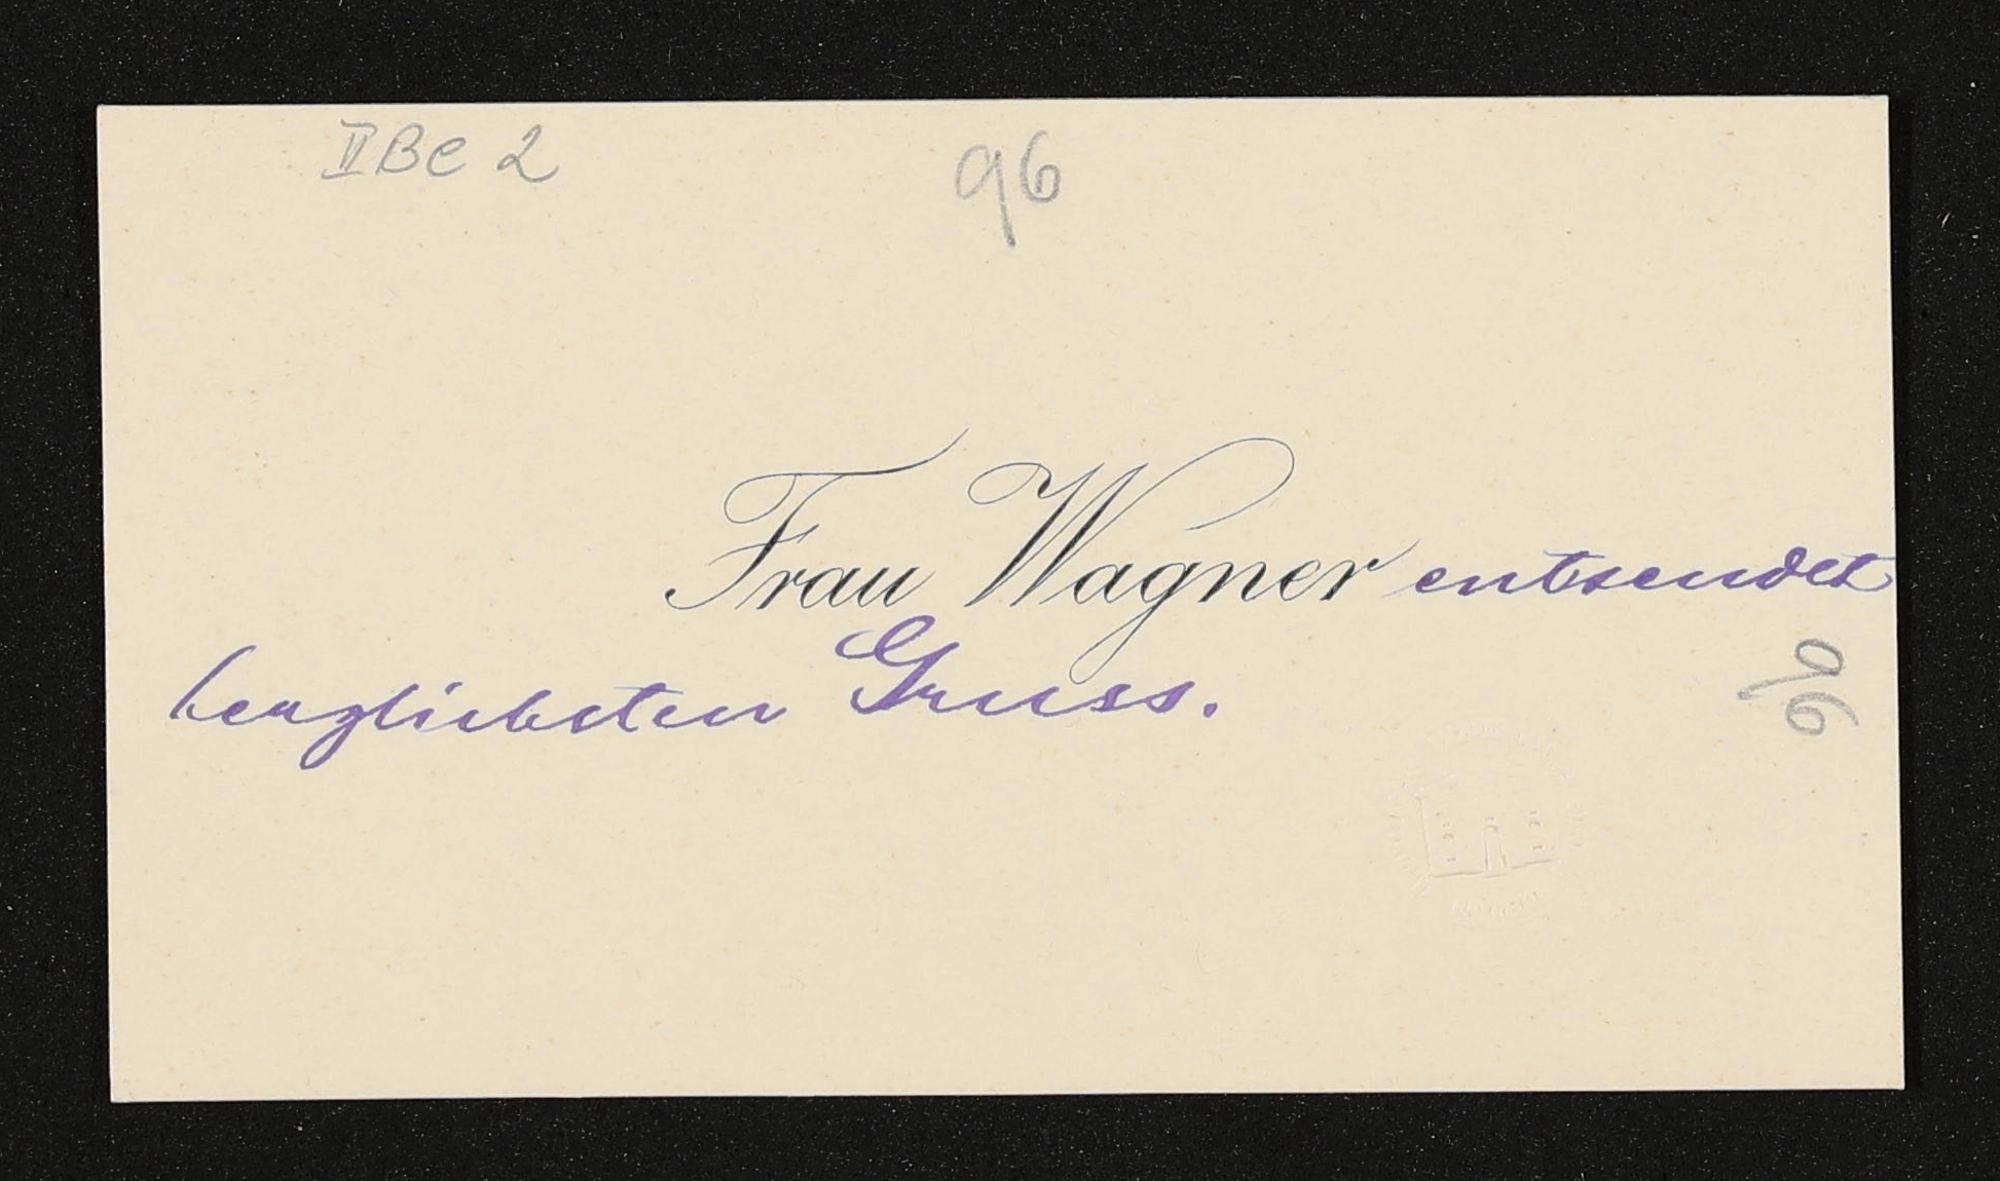 II Be 2
96
Frau Wagner entsendet
herzlichsten Gruss.
96